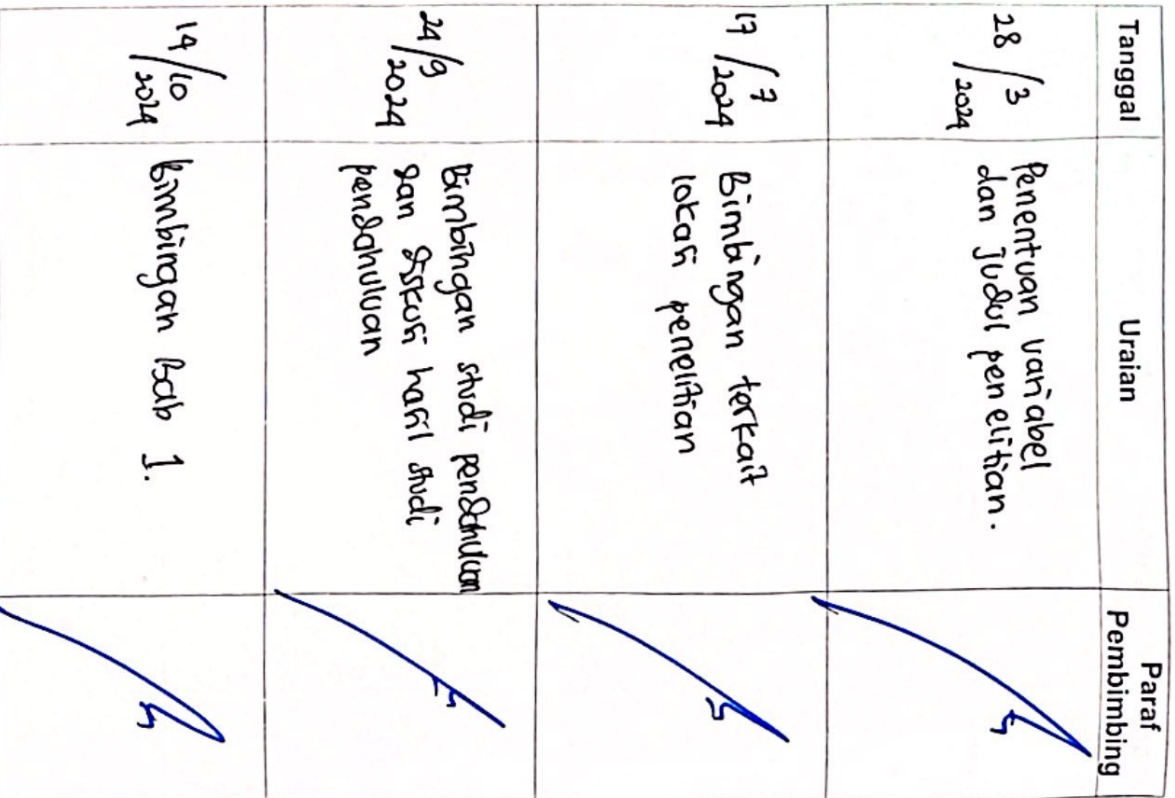 Tanggal
Uraian
Paraf
Pembimbing
28/3
2024
Penentuan variabel
dan judul penelitian.
17/7
2024
Bimbingan terkait
lokasi penelitian
24/9
2024
Bimbingan studi pendahuluan
dan diskusi hasil studi
pendahuluan
14/10
2024
Bimbingan Bab 1.